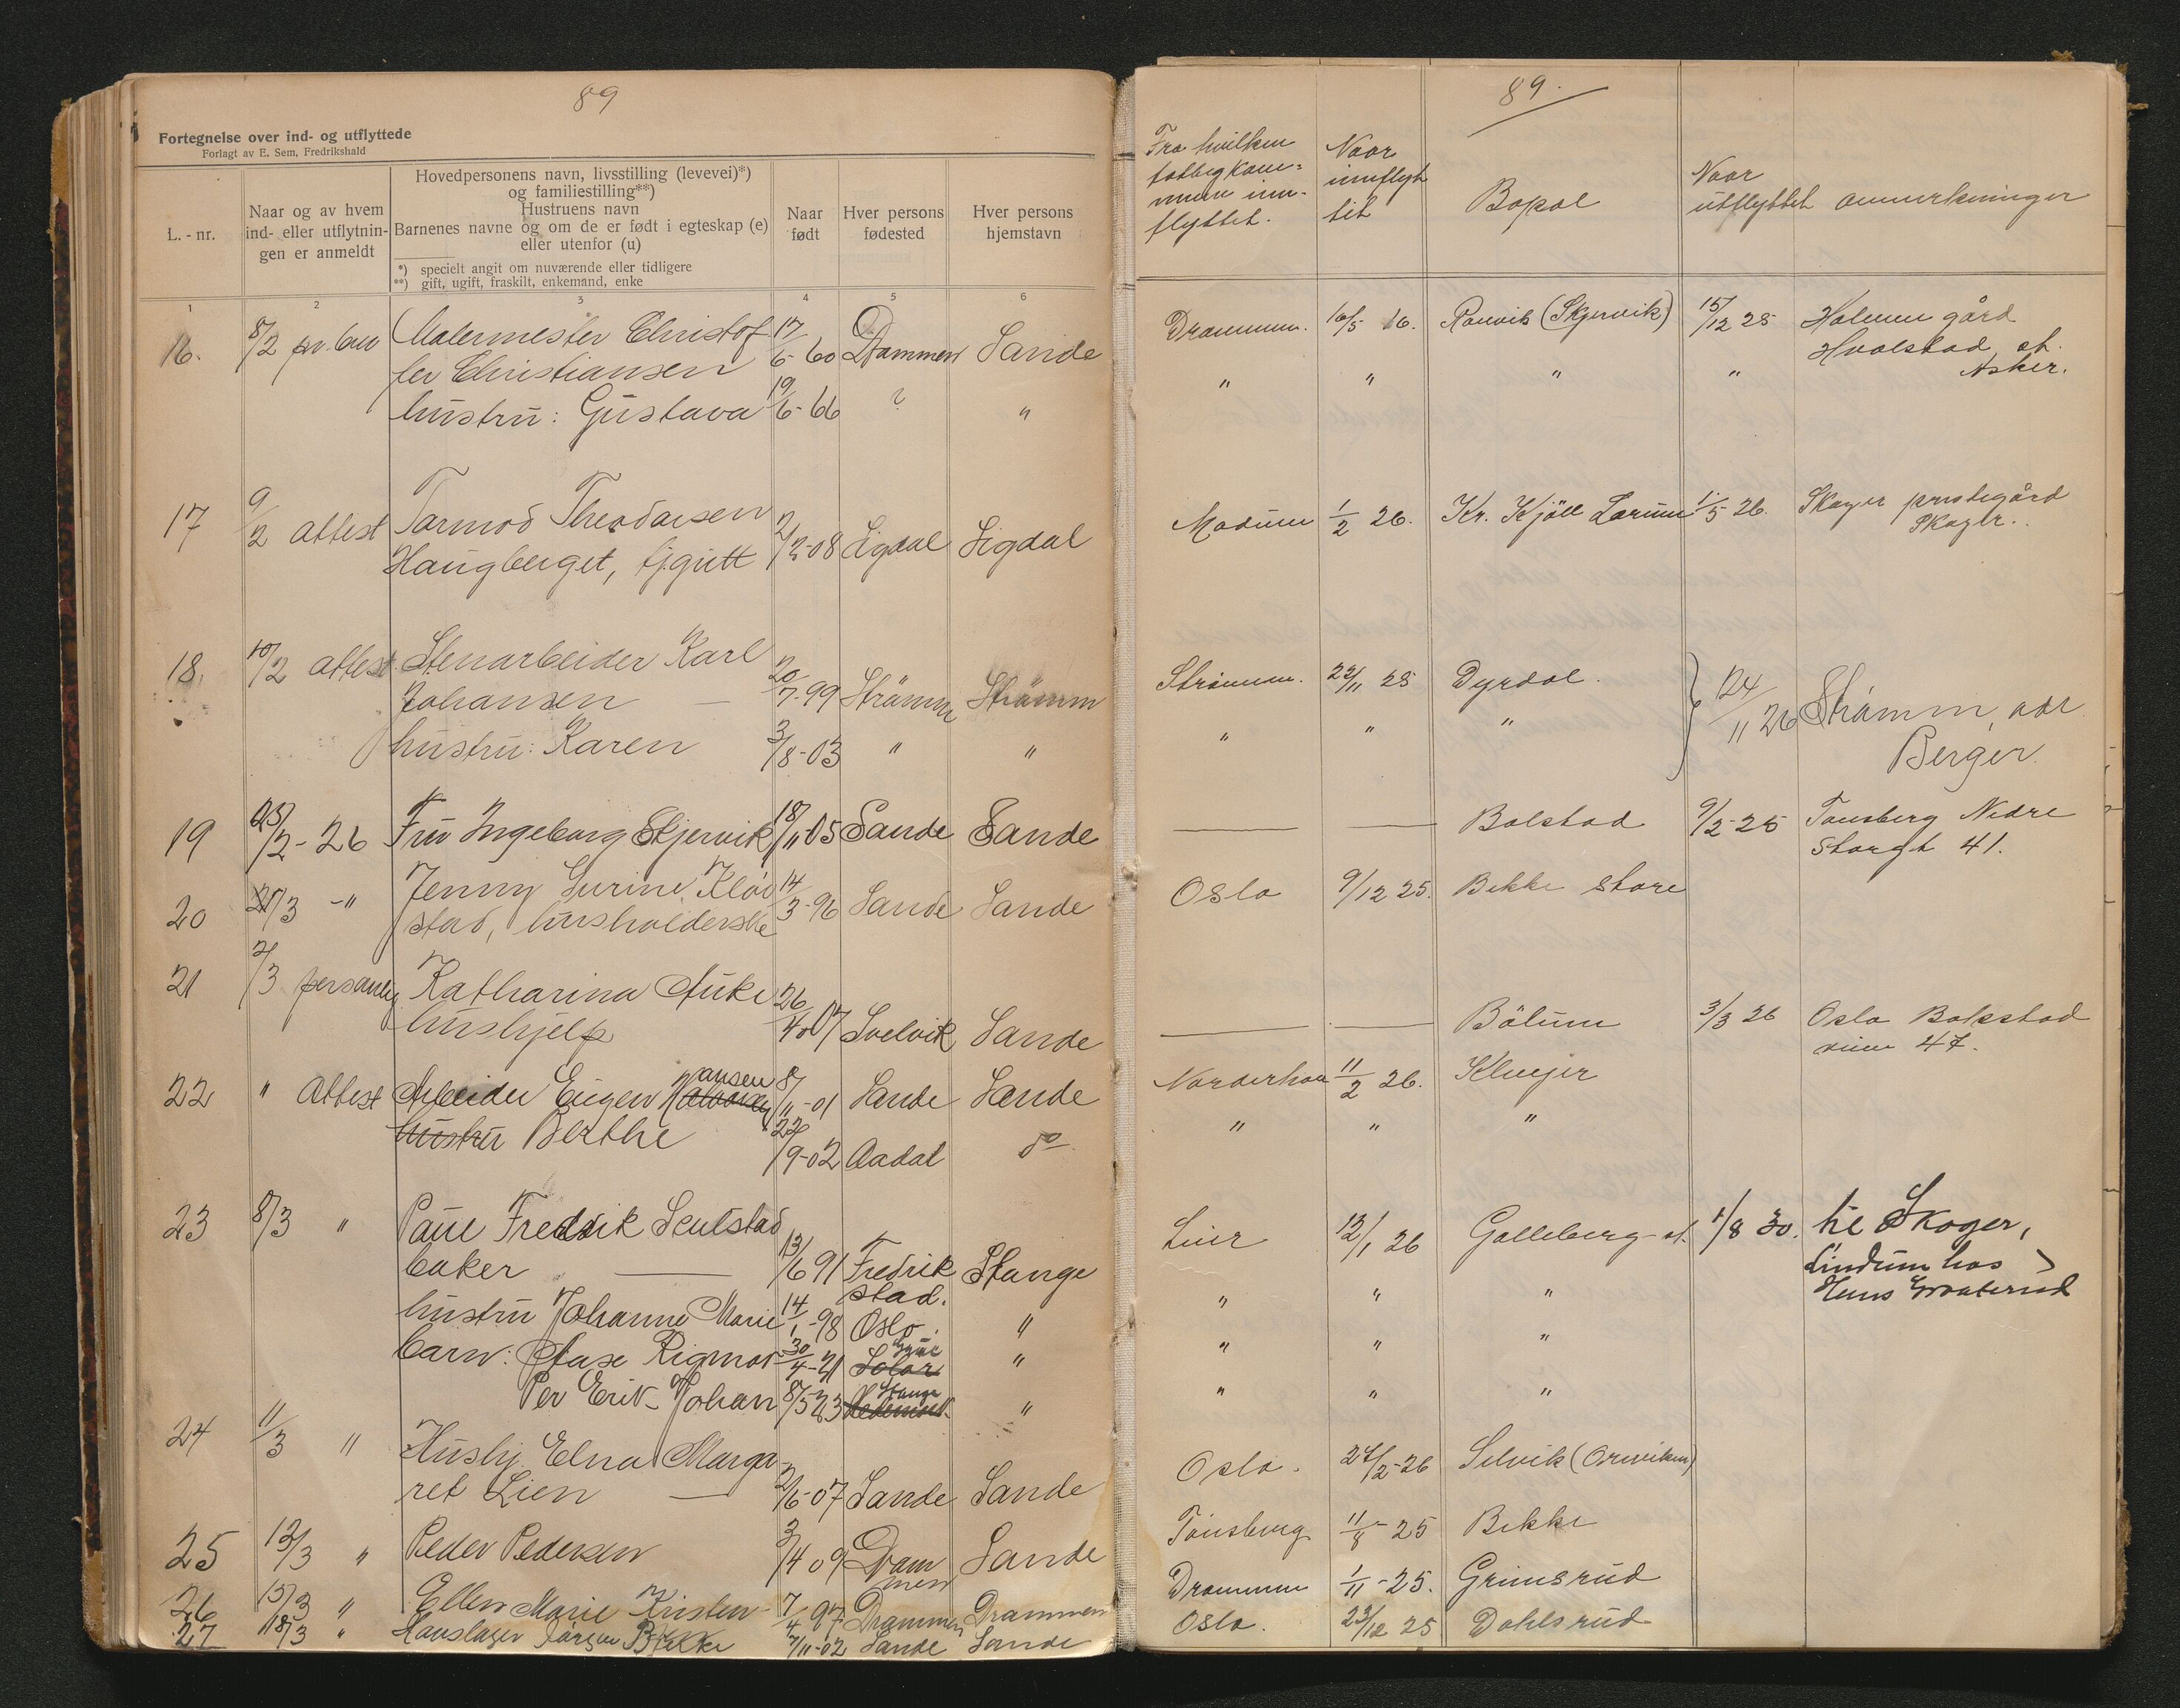 89
Fortegnelse over ind- og utflyttede
Forlagt av E. Sem, Fredrikshald
L. - nr.
Naar og av hvem
ind- eller utflytnin-
gen er anmeldt
Hovedpersonens navn, livsstilling (levevei)*)
og familiestilling**)
Hustruens navn
Barnenes navne og om de er født i egteskap (e)
eller utenfor (u)
*) specielt angit om nuværende eller tidligere
**) gift, ugift, fraskilt, enkemand, enke
Naar
født
Hver persons
fødested
Hver persons
hjemstavn
1 2 3 4 5 6
16. 8/2 Malermester Christof 17
fer Christiansen 6-60 Drammen Sande
hustru: Gustava 19/6-66 ? "
17 9/2 attest Tormod Theodorsen
Haugberget, tj.gutt 2/12-08 Sigdal Sigdal
18. 10/2 attest Stenarbeider Karl
Johansen — 20/7-99 Strømm Strömm
hustru: Karen 3/8-03 " "
19 /2-26 Fru Ingeborg Skjervik 18/11 05 Sande Sande
20 /3 -" Jenny Surine Klov 14
stad, husholderske 3-96 Sande Sande
21 2/3 personlig Katharina Auke 26
hushjelp 4-07 Svelvik Sande
22 " Attest Arbeider Eugen Hansen 8/11-01 Sande Sande
hustru Berthe 22/9-02 Aadal do
23 8/3 " Paul Fredrik Seulstad
baker — 13/6 91 Fredrik Stange
stad.
hustru Johanne Marie 14/1-98 Oslo. "
barn: Aase Rigmor 30/4-21 Solør Grue "
Per Erik Johan 8/5 23 Hedemark Stange "
24 11/3 " Hushj. Elna Marga
ret Lien — 2/6-07 Sande Sande
25 12/3 " Peder Pedersen 3/4 09 Dram Sande
men
26 15/3 " Ellen Marie Kristen- 7/4 97 Drammen Drammen
27 18/3 " Jørgen Bekke 7/11-02 Sande Sande
89.
Fra hvilken
fattigkom=
mune inn-
flyttet.
Naar
innflyt
tet
Bopæl
Naar
utflyttet
anmerkninger
Drammen. 16/5 16. Ranvik (Skjervik) 15/12 25 Holmen gård
Hvalstad st.
Asker.
" " " "
Modum 1/2 26. Kr. Kjöll Lorum 1/5 26. Skoger prestegård
Skoger.
Strömm. 22/11 25 Dyrdal. 24/11 26 Strømm, adr
" " " Berger.
— — Bolstad 9/2-25 Tønsberg Nedre
Storgt 41.
Oslo 9/12 25. Bekke store
— — Bölum 3/3 26 Oslo Bokstad
vien 47.
Norderhov 11/2 26. Klevjer
" " "
Lier 12/1 26 Galleberg st. 1/8 30. til Skoger,
Lindum hos
Hans Graaterud
" " "
" " "
" " "
Oslo. 24/2-26 Selvik (Ormviken)
Tönsberg 11/8-25 Bekke
Drammen 1/11-25. Grimsrud
Oslo. 23/12 25 Dahlsrud